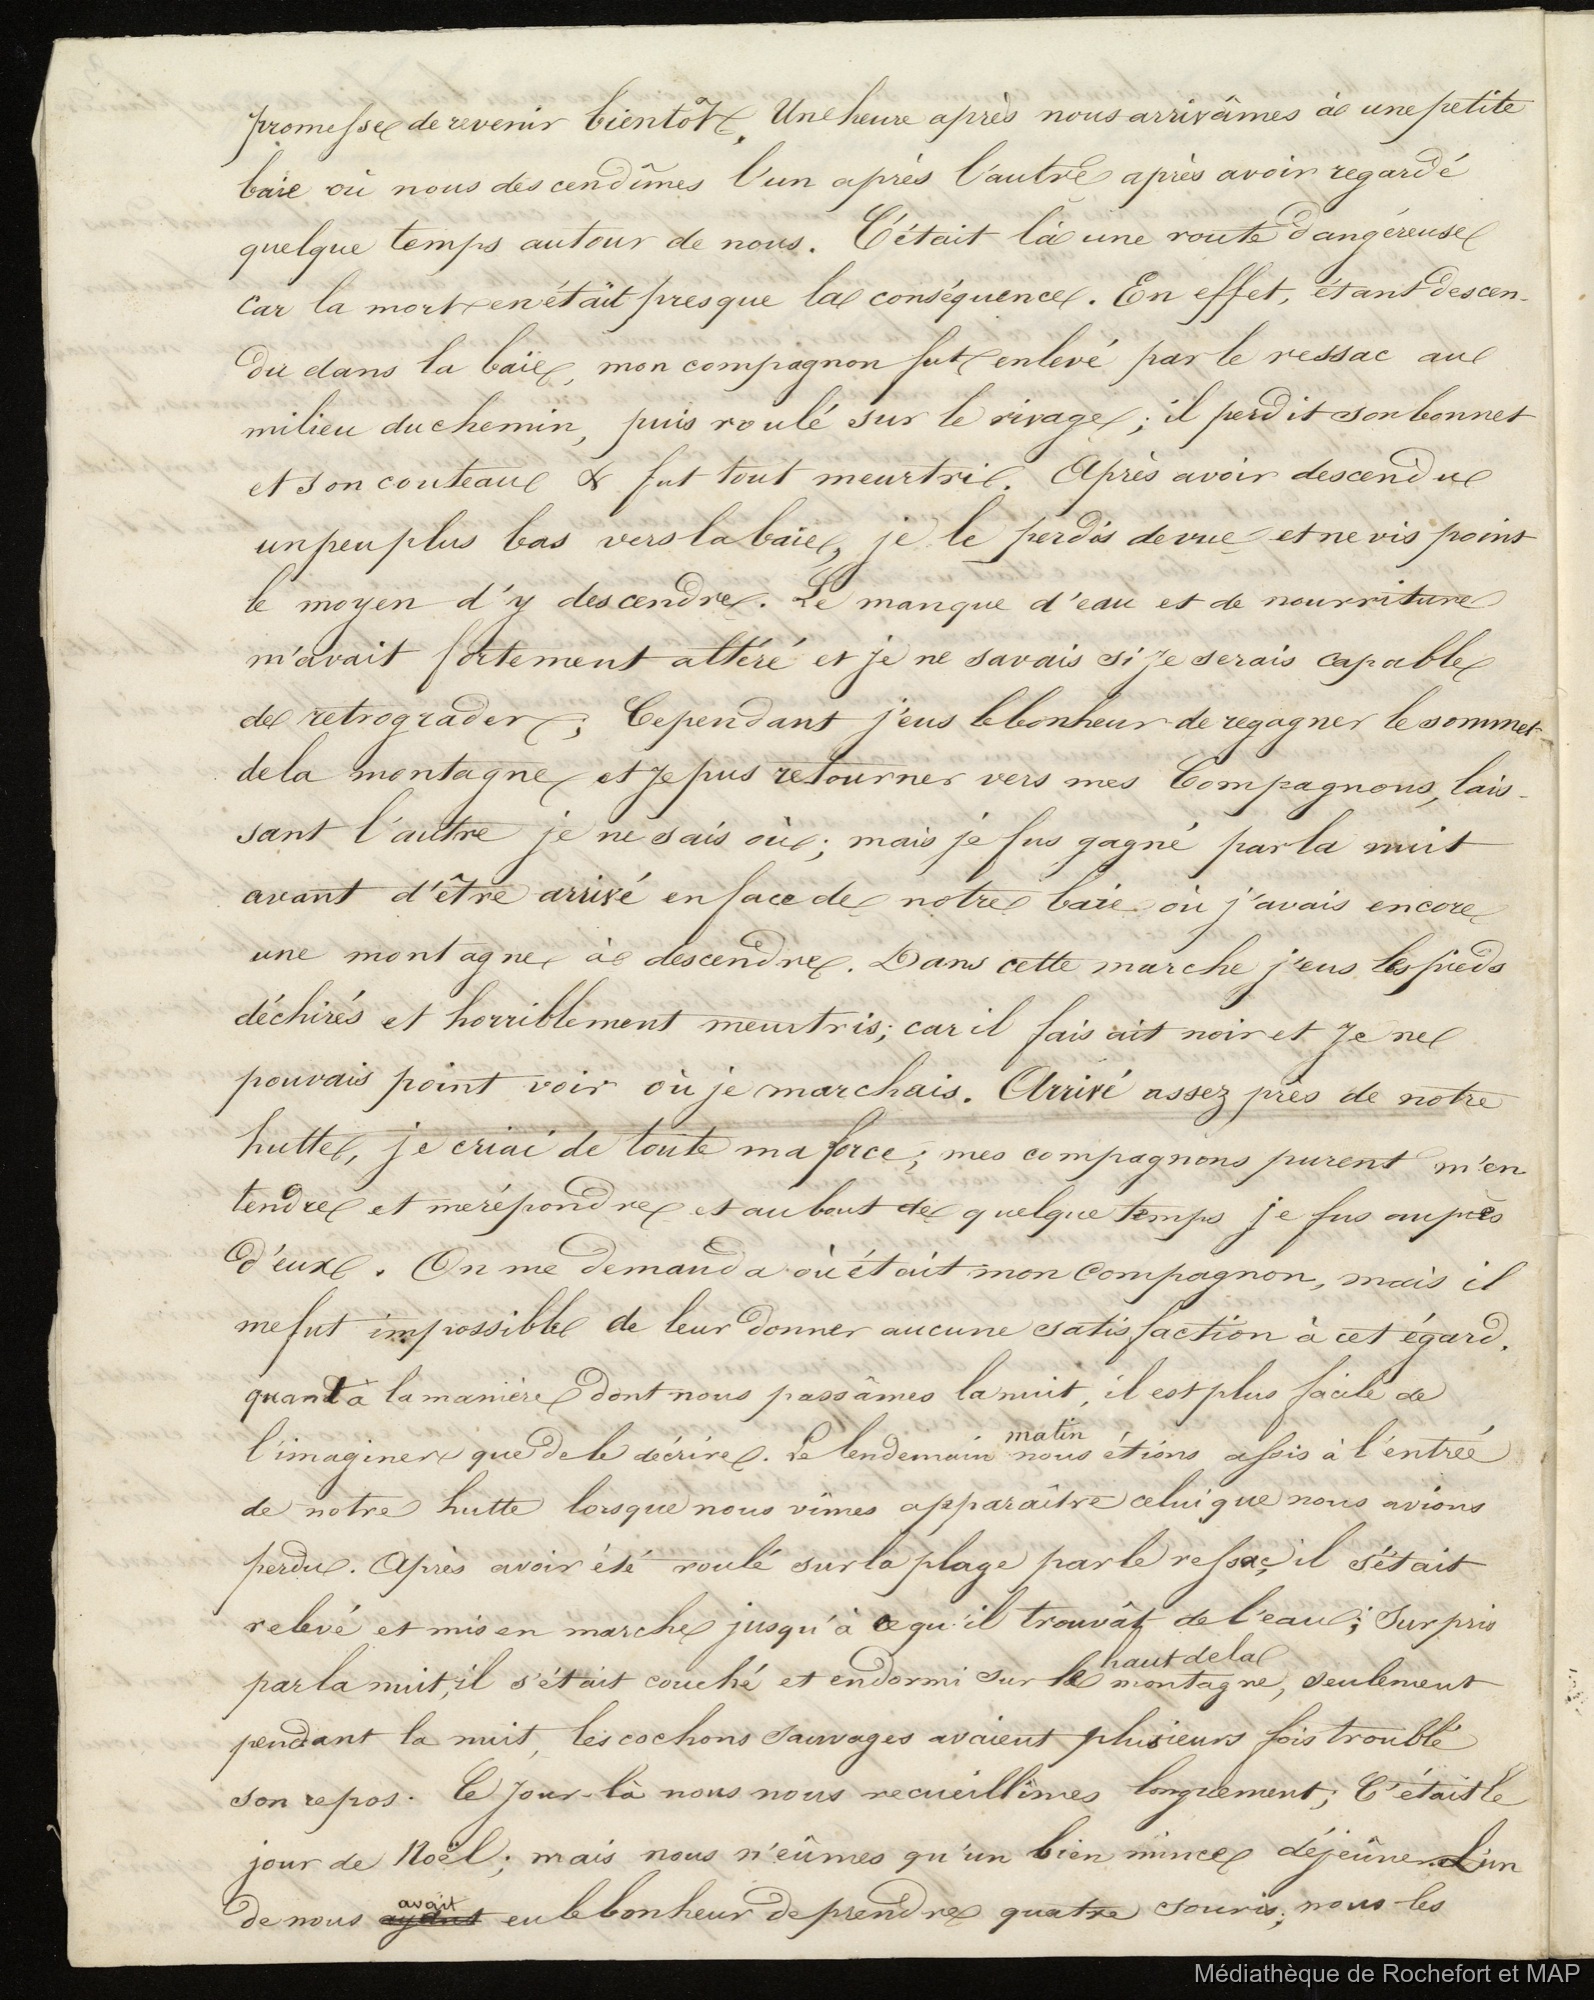 promesse de revenir bientôt. Une heure après nous arrivâmes à une petite
baie où nous descendîmes l'un après l'autre après avoir regardé
quelque temps autour de nous. C'était là une route dangéreuse
car la mort en était presque la conséquence. En effet, étant descen-
du dans la baie, mon compagnon fut enlevé par le ressac au
milieu du chemin, puis roulé sur le rivage; il perdit son bonnet
et son couteau & fut tout meurtri. Après avoir descendu
un peu plus bas vers la baie, je le perdis de vue et ne vis point
le moyen d'y descendre. Le manque d'eau et de nourriture
m'avait fortement altéré et je ne savais si je serais capable
de retrograder; Cependant j'eus le bonheur de regagner le sommet
de la montagne et je pus retourner vers mes Compagnons, lais-
sant l'autre je ne sais où; mais je fus gagné par la nuit
avant d'être arrivé en face de notre baie où j'avais encore
une montagne à descendre. Dans cette marche j'eus les pieds
déchirés et horriblement meurtris; car il faisait noir et je ne
pouvais point voir où je marchais. Arrivé assez près de notre
hutte, je criai de toute ma force; mes compagnons purent m'en
tendre et me répondre et au bout de quelque temps je fus auprès
d'eux. On me demanda où était mon compagnon, mais il
me fut impossible de leur donner aucune satisfaction à cet égard.
quant à la manière dont nous passâmes la nuit, il est plus facile de
l'imaginer que de le décrire. Le lendemain matin nous étions assis à l'entrée
de notre hutte lorsque nous vîmes apparaître celui que nous avions
perdu. Après avoir été roulé sur la plage par le ressac, il s'était
relevé et mis en marche jusqu'à ce qu'il trouvât de l'eau; Surpris
par la nuit, il s'était couché et endormi sur le haut de la montagne, seulement
pendant la nuit, les cochons sauvages avaient plusieurs fois troublé
son repos. Ce jour-là nous nous recueillîmes longuement; C'était le
jour de Noël; mais nous n'eûmes qu'un bien mince déjeûner. L'un
de nous ayant avait eu le bonheur de prendre quatre souris; nous les
Médiathèque de Rochefort et MAP